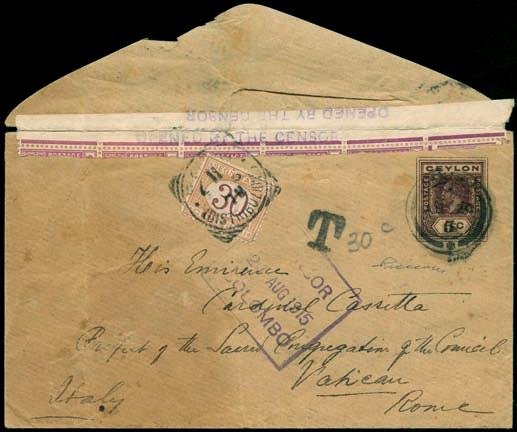 OPENED BY THE CENSOR
OPENED BY THE CENSOR
CEYLON
POSTAGE
30
T
30 c
AUG 1915
COLOMBO
His Eminence
Cardinal Cassetta
Prefect of the Sacred Congregation of the Council
Vatican
Italy
Rome